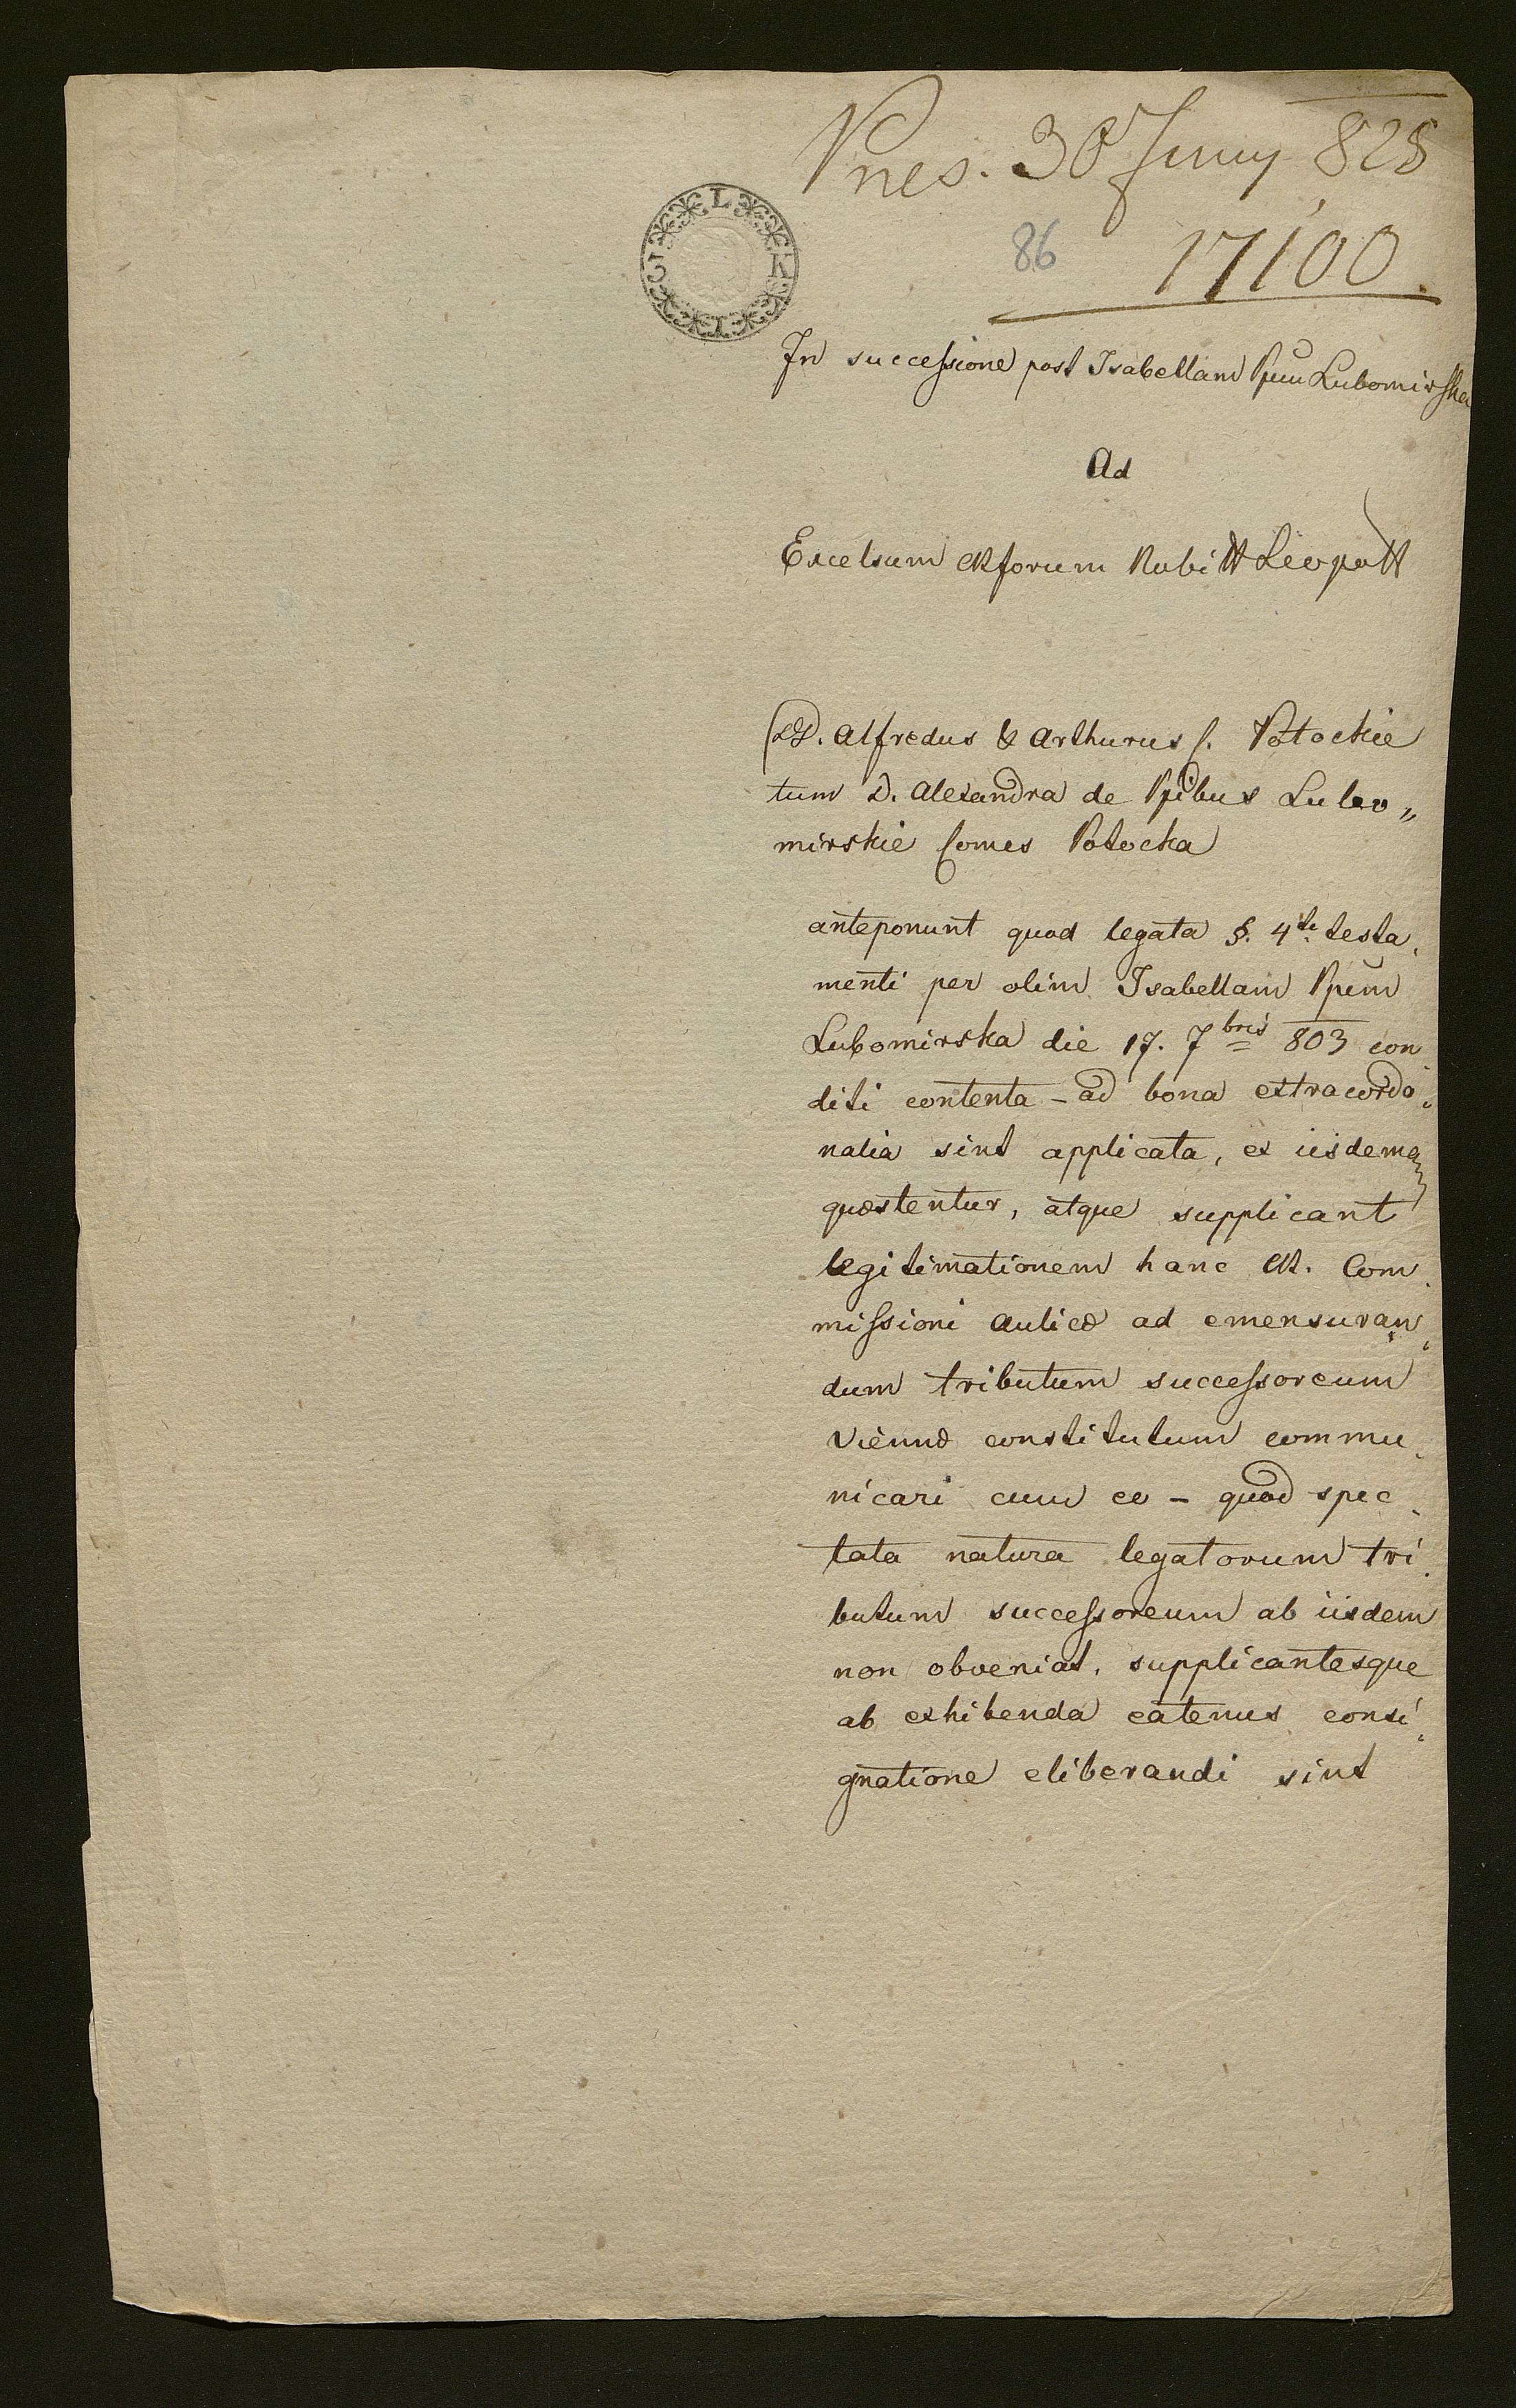 Pnes. 30 Juny 828
86 17100.
3 L K I
In successione post Isabellam Ppm Lubomirska
Ad
Excelsum CR forum Nobi Leopol
DD. Alfredus & Arthurus C. Potockie
tum D. Alexandra de Ppibus Lubo„
mirskie Comes Potocka
anteponunt quod legata §. 4ti testa„
menti per olim Isabellam Ppim
Lubomirska die 17. 7bris 803 con„
diti contenta – ad bona extracordo„
nalia sint applicata, ex iisdem
quæstentur, atque supplicant
legitimationem hanc CR. Com„
missioni Aulicæ ad emensuran„
dum tributum successoreum
Viennæ constitutum commu„
nicari cum eo – quod spec„
tata natura legatorum tri„
butum successoreum ab iisdem
non obveniat, supplicantesque
ab exhibenda eatenus consi„
gnatione eliberandi sint